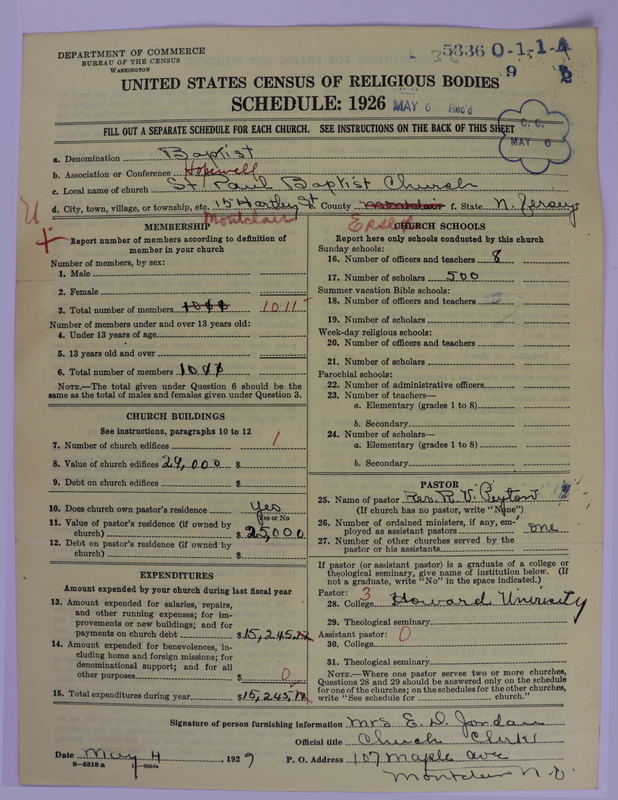 DEPARTMENT OF COMMERCE
BUREAU OF THE CENSUS
WASHINGTON
5336 0-1-1-A
9 2
UNITED STATES CENSUS OF RELIGIOUS BODIES
SCHEDULE: 1926 MAY 6 Rec'd
C. C.
MAY 6
FILL OUT A SEPARATE SCHEDULE FOR EACH CHURCH. SEE INSTRUCTIONS ON THE BACK OF THIS SHEET
a. Denomination Baptist
b. Association or Conference Hopewell
c. Local name of church St Paul Baptist Church
d. City, town, village, or township, etc. 15 Hartley St e. County Montclair f. State N. Jersey
Montclair Essex
U
MEMBERSHIP
Report number of members according to definition of
member in your church
Number of members, by sex:
1. Male
2. Female
3. Total number of members 1011
Number of members under and over 13 years old:
4. Under 13 years of age
5. 13 years old and over
6. Total number of members
NOTE.—The total given under Question 6 should be the
same as the total of males and females given under Question 3.
CHURCH BUILDINGS
See instructions, paragraphs 10 to 12
7. Number of church edifices 1
8. Value of church edifices 29,000 $
9. Debt on church edifices $
10. Does church own pastor's residence yes
Yes or No
11. Value of pastor's residence (if owned by
church) $ 25,000
12. Debt on pastor's residence (if owned by
church) $
EXPENDITURES
Amount expended by your church during last fiscal year
13. Amount expended for salaries, repairs,
and other running expenses; for im-
provements or new buildings; and for
payments on church debt $15,245.
14. Amount expended for benevolences, in-
cluding home and foreign missions; for
denominational support; and for all
other purposes $ 0
15. Total expenditures during year $15,245.
CHURCH SCHOOLS
Report here only schools conducted by this church
Sunday schools:
16. Number of officers and teachers 8
17. Number of scholars 500
Summer vacation Bible schools:
18. Number of officers and teachers
19. Number of scholars
Week-day religious schools:
20. Number of officers and teachers
21. Number of scholars
Parochial schools:
22. Number of administrative officers
23. Number of teachers—
a. Elementary (grades 1 to 8)
b. Secondary
24. Number of scholars—
a. Elementary (grades 1 to 8)
b. Secondary
PASTOR
25. Name of pastor Rev. R. V. Peyton
(If church has no pastor, write "None")
26. Number of ordained ministers, if any, em-
ployed as assistant pastors one
27. Number of other churches served by the
pastor or his assistants
If pastor (or assistant pastor) is a graduate of a college or
theological seminary, give name of institution below. (If
not a graduate, write "No" in the space indicated.)
Pastor: 3
28. College Howard University
29. Theological seminary
Assistant pastor: 0
30. College
31. Theological seminary
NOTE.—Where one pastor serves two or more churches,
Questions 28 and 29 should be answered only on the schedule
for one of the churches; on the schedules for the other churches,
write "See schedule for church."
Signature of person furnishing information Mrs E. D. Jordan
Official title Church Clerk
Date May 4, 1927 P. O. Address 107 Maple ave
8—5518 a
Montclair N. J.